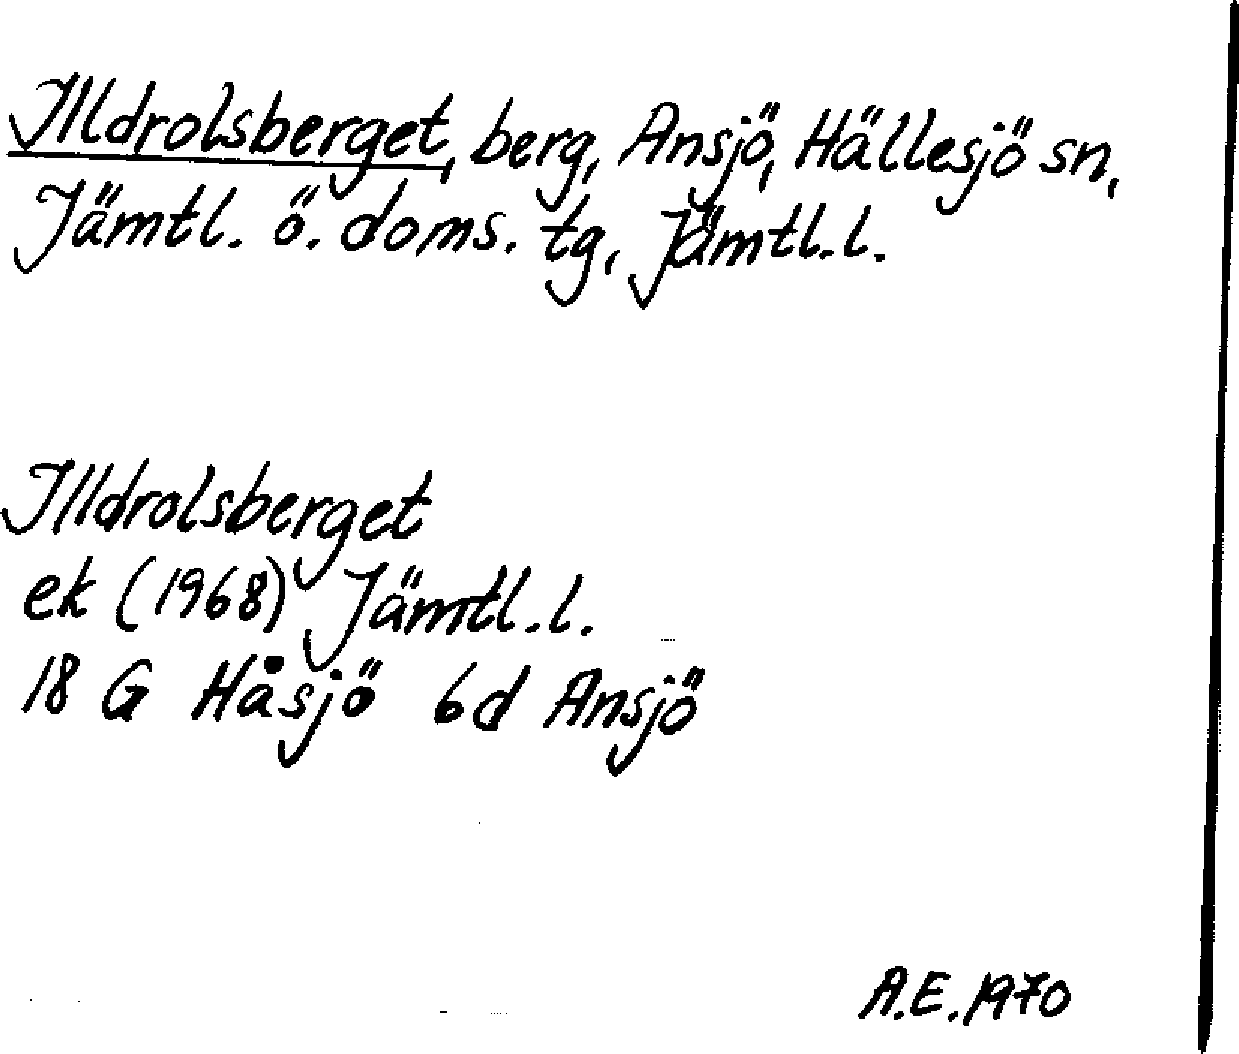 Illdrolsberget, berg, Ansjö, Hällesjö sn,
Jämtl. ö. doms. tg, Jämtl. l.
Illdrolsberget
ek (1968) Jämtl. l.
18 G Håsjö 6d Ansjö
A.E. 1970